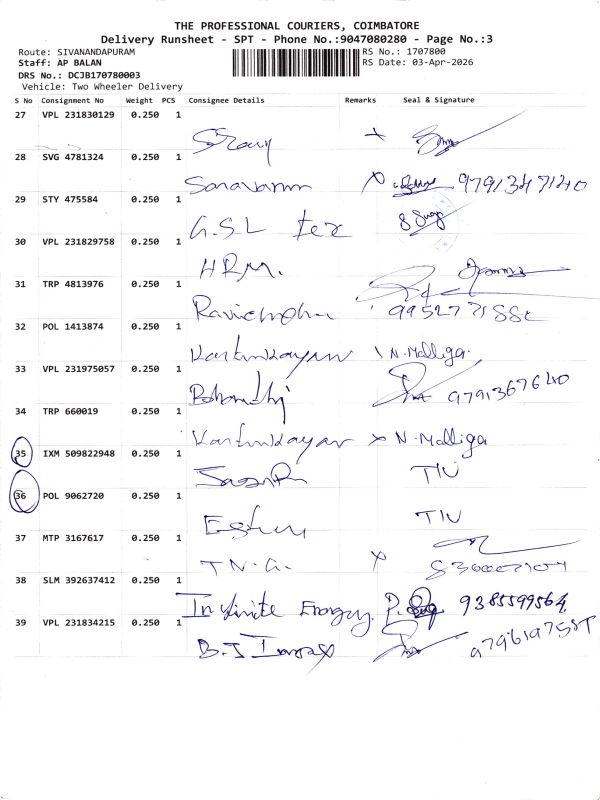 THE PROFESSIONAL COURIERS, COIMBATORE
Delivery Runsheet - SPT - Phone No.:9047080280 - Page No.:3
Route: SIVANANDAPURAM RS No.: 1707800
Staff: AP BALAN RS Date: 03-Apr-2026
DRS No.: DCJB170780003
Vehicle: Two Wheeler Delivery
S No Consignment No Weight PCS Consignee Details Remarks Seal & Signature
27 VPL 231830129 0.250 1
28 SVG 4781324 0.250 1
Saravanan X 9791347140
29 STY 475584 0.250 1
G.S.L tex
30 VPL 231829758 0.250 1
HRM.
31 TRP 4813976 0.250 1
32 POL 1413874 0.250 1
N. Malliga
33 VPL 231975057 0.250 1
9791367640
34 TRP 660019 0.250 1
X N. Malliga
35 IXM 509822948 0.250 1
TIU
36 POL 9062720 0.250 1
TIU
37 MTP 3167617 0.250 1
T.N.G. X
38 SLM 392637412 0.250 1
Infinite Energy. 9385599564
39 VPL 231834215 0.250 1